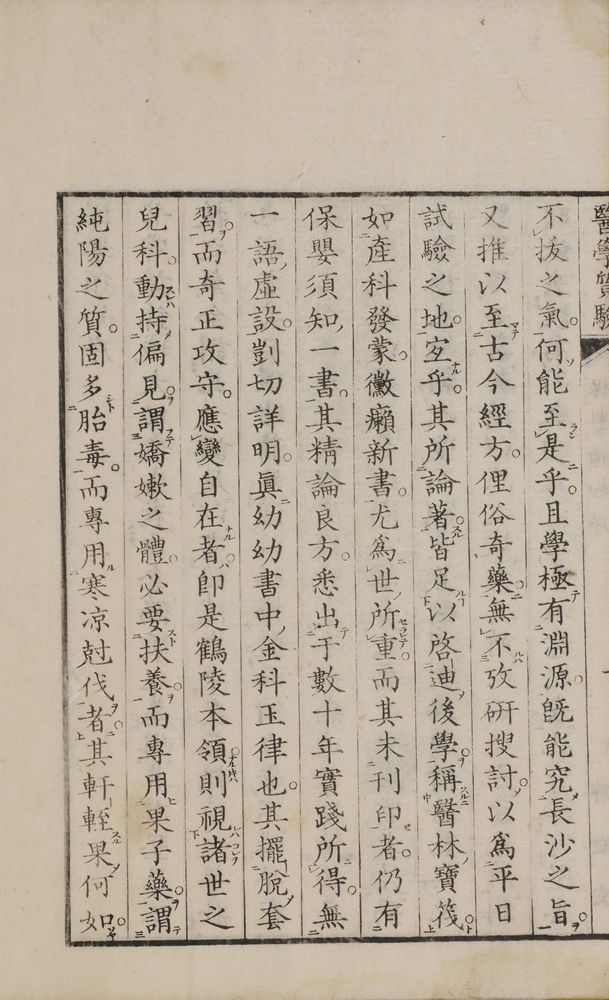 醫學質驗
不拔之氣。何能至是乎。且學極有淵源。旣能究長沙之旨。
又推以至古今經方。俚俗奇藥。無不攷硏搜討。以爲平日
試驗之地。宐乎。其所論著。皆足以啓迪後學。稱醫林寶筏。
如產科發蒙。黴癩新書。尤爲世所重。而其未刊印者。仍有
保嬰須知一書。其精論良方。悉出于數十年實踐所得。無
一語虛設。剴切詳明。眞幼幼書中金科玉律也。其擺脫套
習。而奇正攻守。應變自在者。卽是鶴陵本領。則視諸世之
兒科。動持偏見。謂嬌嫰之體。必要扶養。而專用果子藥。謂
純陽之質。固多胎毒。而專用寒凉尅伐者。其軒輊果何如